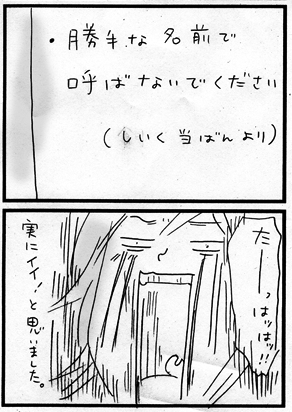 ・勝手な名前で
呼ばないでください
(しいく当ばんより)
だーーっ
はッはッ!!
実にイイ!と思いました。